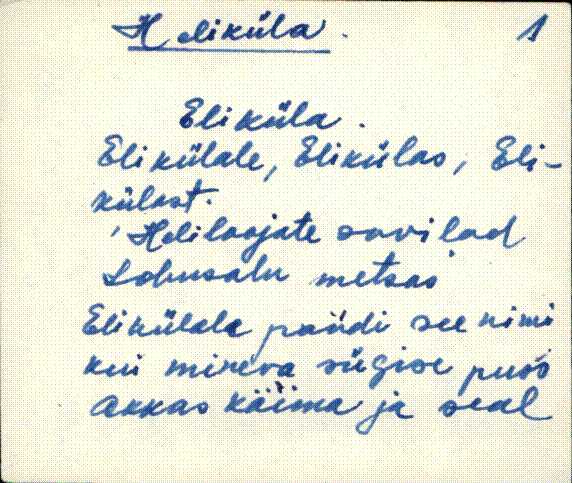 Heliküla. 1
Eliküla.
Elikülale, Elikülas, Eli-
külast.
'Heliloojate suvilad
Lohusalu metsas'
Elikülale pandi see nimi
kui mineva sügise puss
akkas käima ja seal